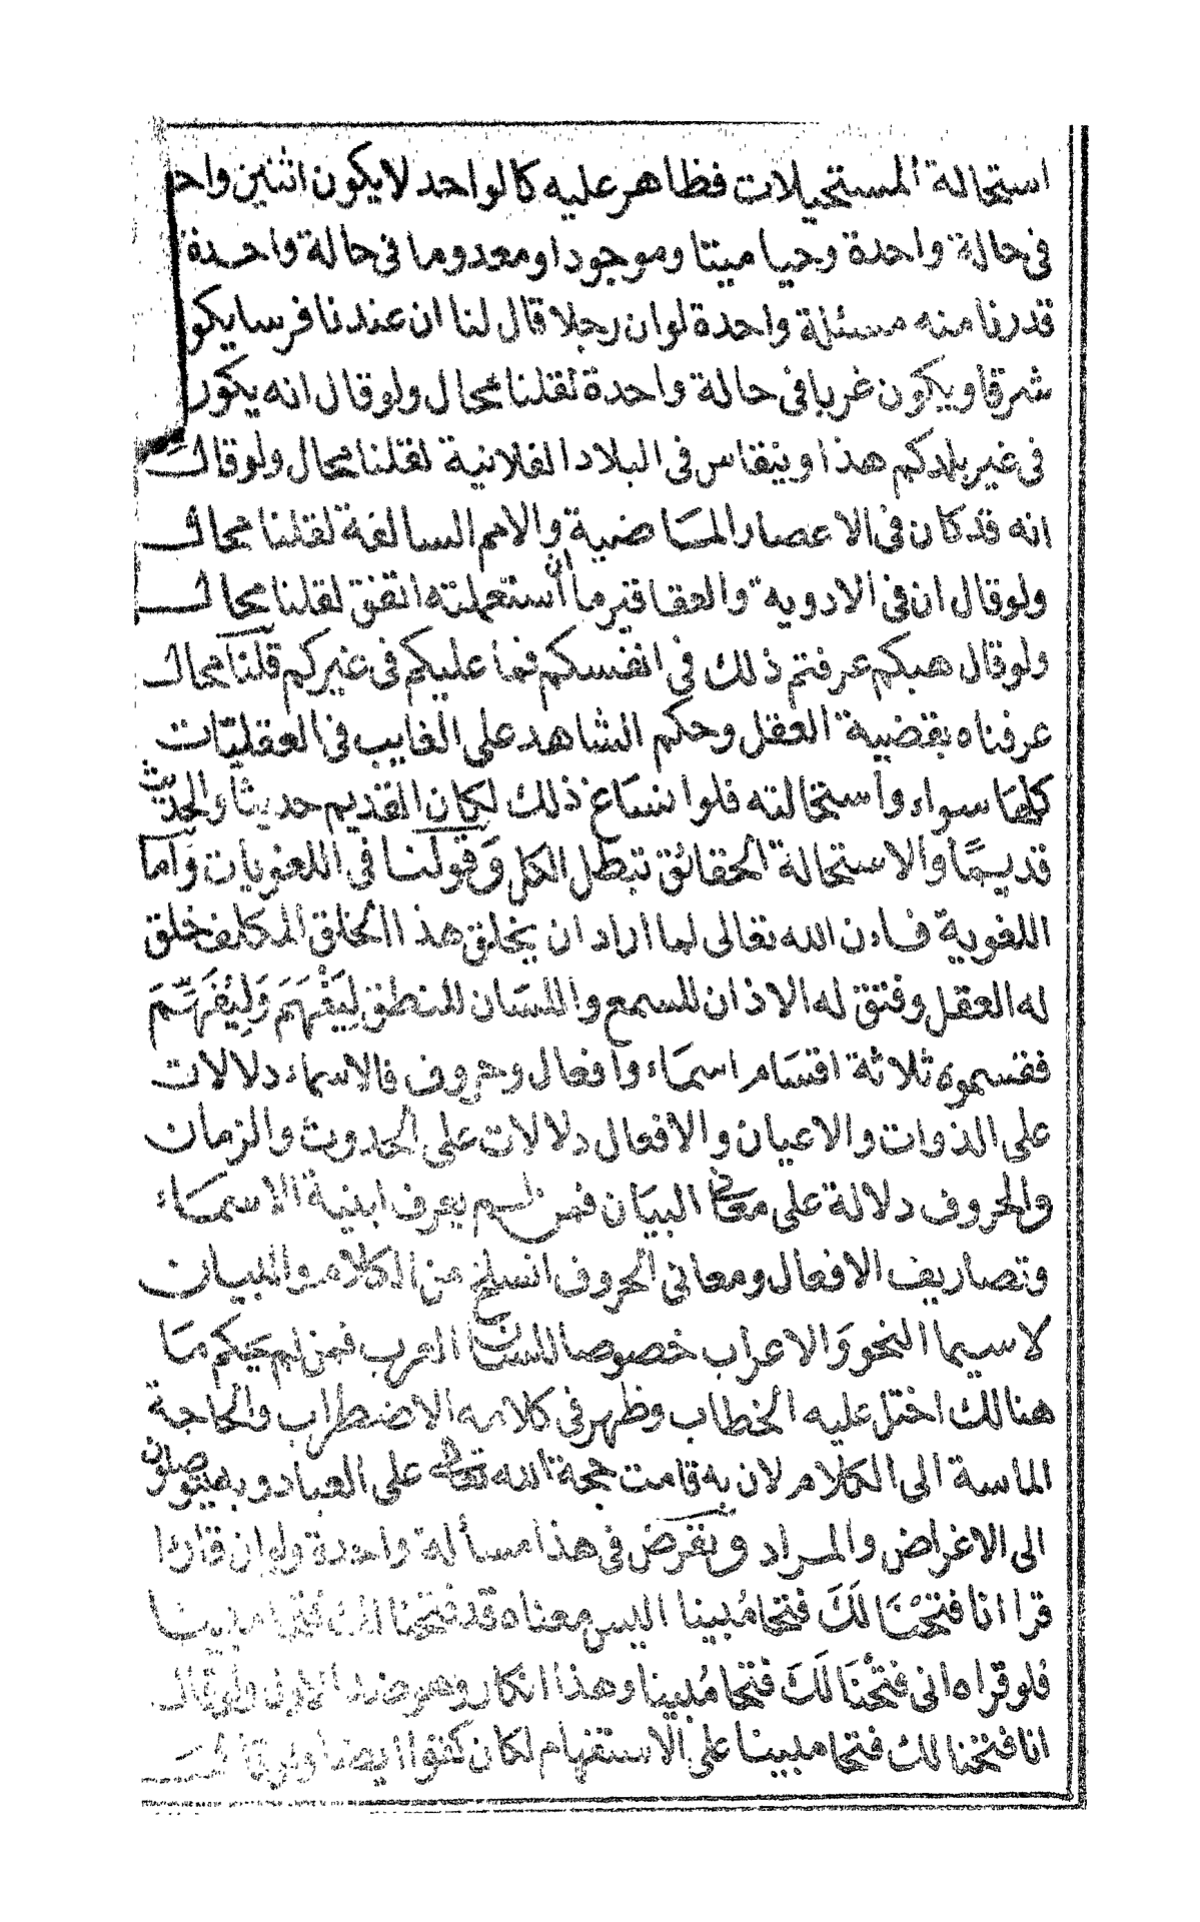 استحالة المستحيلات فظاهر عليه كالواحد لا يكون اثنين واحد
في حالة واحدة وحيا ميتا وموجودا ومعدوما في حالة واحدة
قدرنا منه مسئلة واحدة لو ان رجلا قال لنا ان عندنا فرسا يكو
شرقا ويكون غربا في حالة واحدة لقلنا محال ولو قال انه يكون
في غير بلادكم هذا وينقاس في البلاد الفلانية لقلنا محال ولو قال
انه قد كان في الاعصار الماضية والامم السالفة لقلنا محال
ولو قال ان في الادوية والعقاقير ما ان استعملته اتفق لقلنا محال
ولو قال هبكم عرفتم ذلك في انفسكم فما عليكم في غيركم قلنا محال
عرفناه بقضية العقل وحكم الشاهد على الغايب في العقليات
كلها سواء واستحالته فلو انساغ ذلك لكان القديم حديثا والحديث
قديما والاستحالة الحقائق تبطل الكل وقولنا في اللغويات واما
اللغوية فاءن الله تعالى لما اراد ان يخلق هذا الخلق المكلف خلق
له العقل وفتق له الاذان للسمع واللسان للنطق ليفهم وليفهم
فقسموه ثلاثة اقسام اسماء وافعال وحروف فالاسماء دلالات
على الذوات والاعيان والافعال دلالات على الحدوث والزمان
والحروف دلالة على معاني البيان فمن لم يعرف ابنية الاسماء
وتصاريف الافعال ومعاني الحروف انسلخ من الكلام والبيان
لا سيما النحو والاعراب خصوصا للسان العرب فمن لم يحكم ما
هنالك اختل عليه الخطاب وظهر في كلامه الاضطراب والحاجة
الماسة الى الكلام لان به قامت حجة الله تعالى على العباد وبه يتوصلون
الى الاغراض والمراد ونفرض في هذا مسألة واحدة ولو ان قارئا
قرا انا فتحنا لك فتحا مبينا اليس معناه قد فتحنا لك فتحا مبينا
فلو قراه اني فتحنا لك فتحا مبينا وهذا انكار وهو ضد الاول ولو قال
انا فتحنا لك فتحا مبينا على الاستفهام لكان كفوا ايضا ولو قال